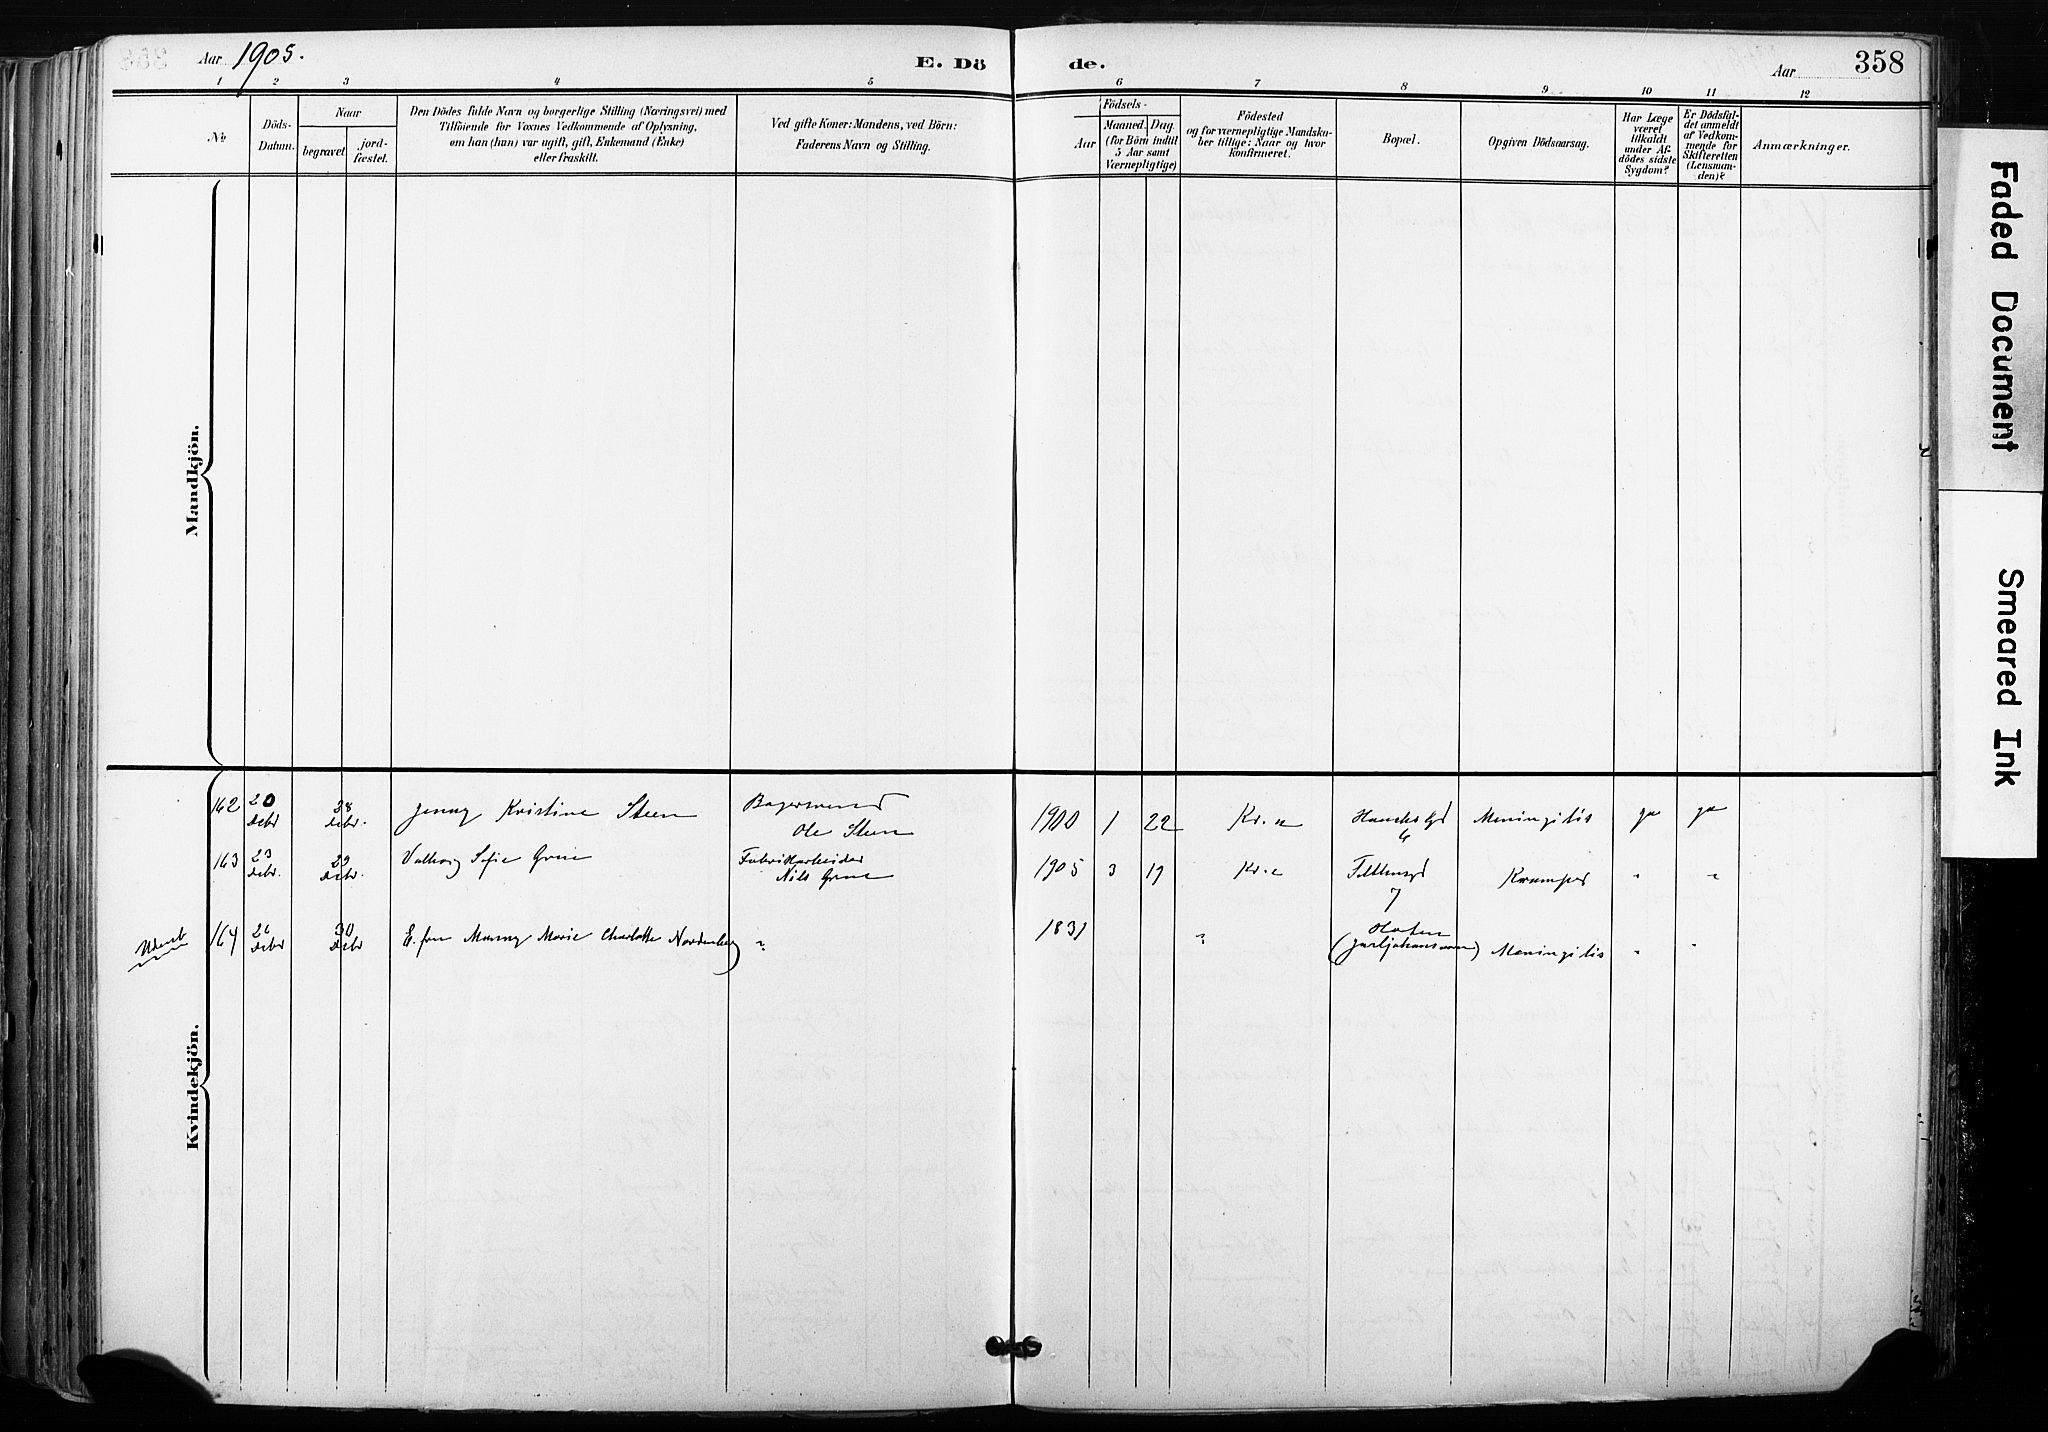 Aar 1905.
E. Dö de.
Aar
358
1 2 3 4 5 6 7 8 9 10 11 12
No
Döds-
Datum.
Naar
begravet.
jord-
fæstet.
Den Dödes fulde Navn og borgerlige Stilling (Næringsvei) med
Tilföiende for Voxnes Vedkommende af Oplysning,
om han (hun) var ugift, gift, Enkemand (Enke)
eller fraskilt.
Ved gifte Koner: Mandens, ved Börn:
Faderens Navn og Stilling.
Födsels-
Aar
Maaned. Dag.
(for Börn indtil
5 Aar samt
Værnepligtige)
Födested
og for værnepligtige Mandska-
ber tillige: Naar og hvor
konfirmeret.
Bopæl.
Opgiven Dödsaarsag.
Har Læge
været
tilkaldt
under Af-
dödes sidste
Sygdom?
Er Dödsfal-
det anmeldt
af Vedkom-
mende for
Skifteretten
(Lensman-
den)?
Anmærkninger.
Mandkjön.
Kvindekjön.
162 20 Debr 28 Debr. Jenny Kristine Steen
Ole Steen 1900 1 22 Kr.a
6 Meningitis ja ja
163 23 Debr. 29 Debr. Valborg Sofie Grue Fabrikarbeider
Nils Grue 1905 3 19 Kr.a
7 Kramper " "
164 26 Debr 30 Debr E. fru Manny Marie Charlotte Nordenberg " 1831 "
Horten
(Karljohansvern) Meningitis " "
Faded Document
Smeared Ink